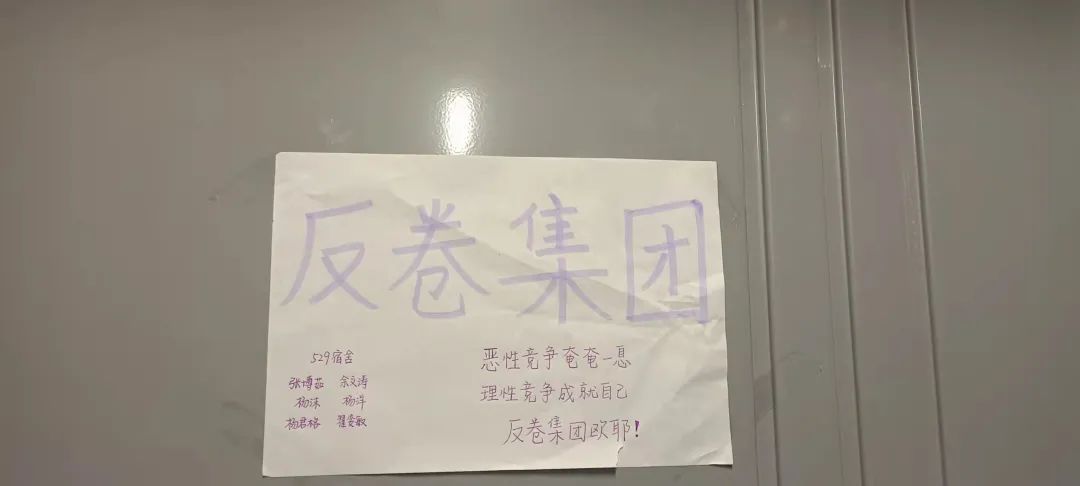 反卷集团
529宿舍
张博茹 余文涛
杨沫 杨洋
杨君格 翟雯敏
恶性竞争奄奄一息
理性竞争成就自己
反卷集团欧耶!